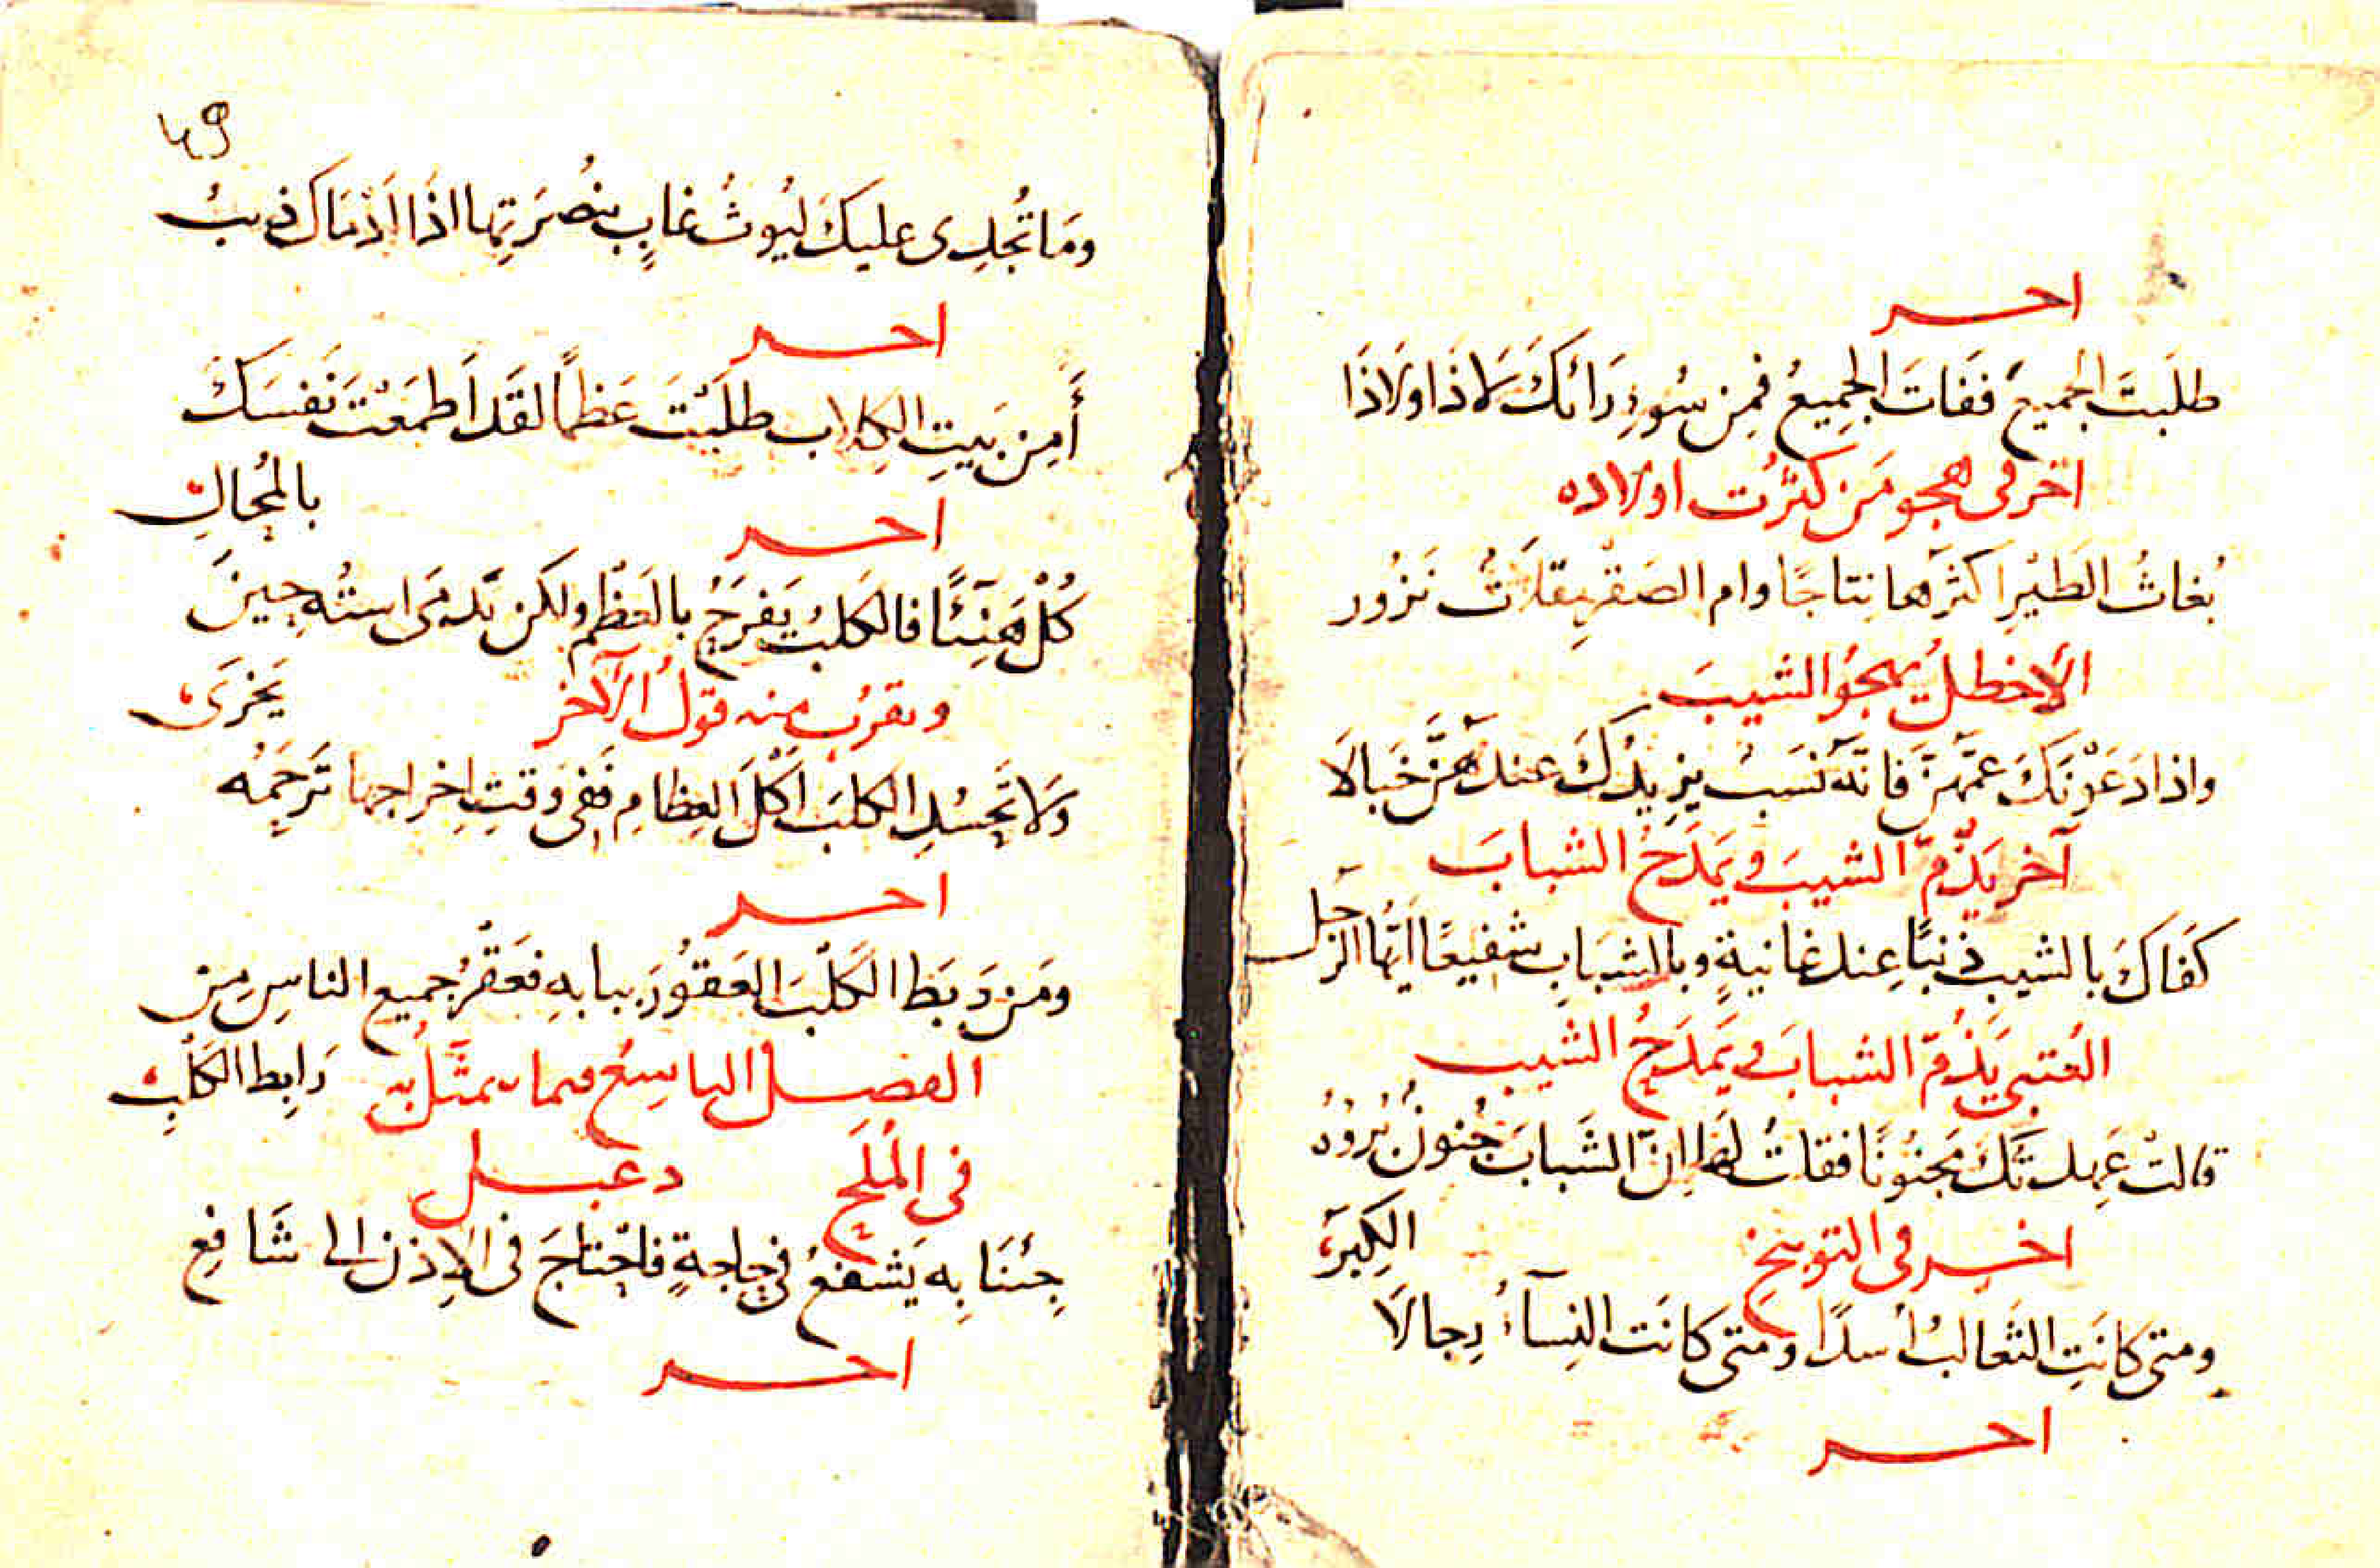 احــر
طلَبتَ الجميعَ ففَاتَ الجميعُ فمِن سُوءِ رَائكَ لَا ذَا ولَا ذَا
آخر فى هجو مَن كثُرت اولاده
بُغاثُ الطَيْرِ اكثَرُها نِتاجًا وام الصَقْرِ مِقلَاتٌ نَزُور
الاخطلُ يهجُو الشيبَ
واذا دَعَوْنَكَ عمَّهنَّ فانّه نَسَبٌ يزيدُكَ عندَهُنَّ خَبالَا
آخر يَذُمّ الشيبَ ويَمدَحُ الشبابَ
كفَاكَ بالشيبِ ذَنبًا عِند غانيةٍ وبالشبَابِ شفيعًا ايّها الرَجل
العُتبى يَذُمّ الشبابَ ويَمدَحُ الشيب
قالتْ عَهِدتُكَ مَجنُونًا فقلتُ لها اِنّ الشَبابَ جُنونٌ بُرؤهُ
الكِبَرُ
اخــر فى التوبيخِ
ومتى كانَتِ الثعَالبُ أُسدًا ومتى كانَت النِسآءُ رِجالَا
احــر
49
ومَا تُجدِى عليكَ ليُوثُ غابٍ بنُصرَتِها اذَا اَدْمَاكَ ذيبُ
احــر
أَمِن بَيتِ الكِلاب طلَبْتَ عَظمًا لقَد اَطمَعْتَ نَفسَكَ
بالمُحالِ
احــر
كُلْ هَنِئًا فالكلبُ يَفرَحُ بالعَظْمِ ولكن تَدمَى استُه حِينَ
يَخرَى
ويقرُب منه قولُ الآخر
ولَا تَحسُدِ الكلبَ اَكْلَ العِظامِ ففى وَقتِ اِخراجها تَرحَمُه
احــر
ومَن رَبَط الكَلْبَ العَقُورَ ببابهِ فعَقْرُ جميع الناسِ مِن
رَابِط الكَلْبِ
الفصــل التاسِعُ فيما يتمثّل به
فى المُلَحِ دعبــل
جِئنَا بِه يَشفَعُ فى حاجةٍ فاحْتاجَ فى الاِذن الى شَافِعِ
احــر